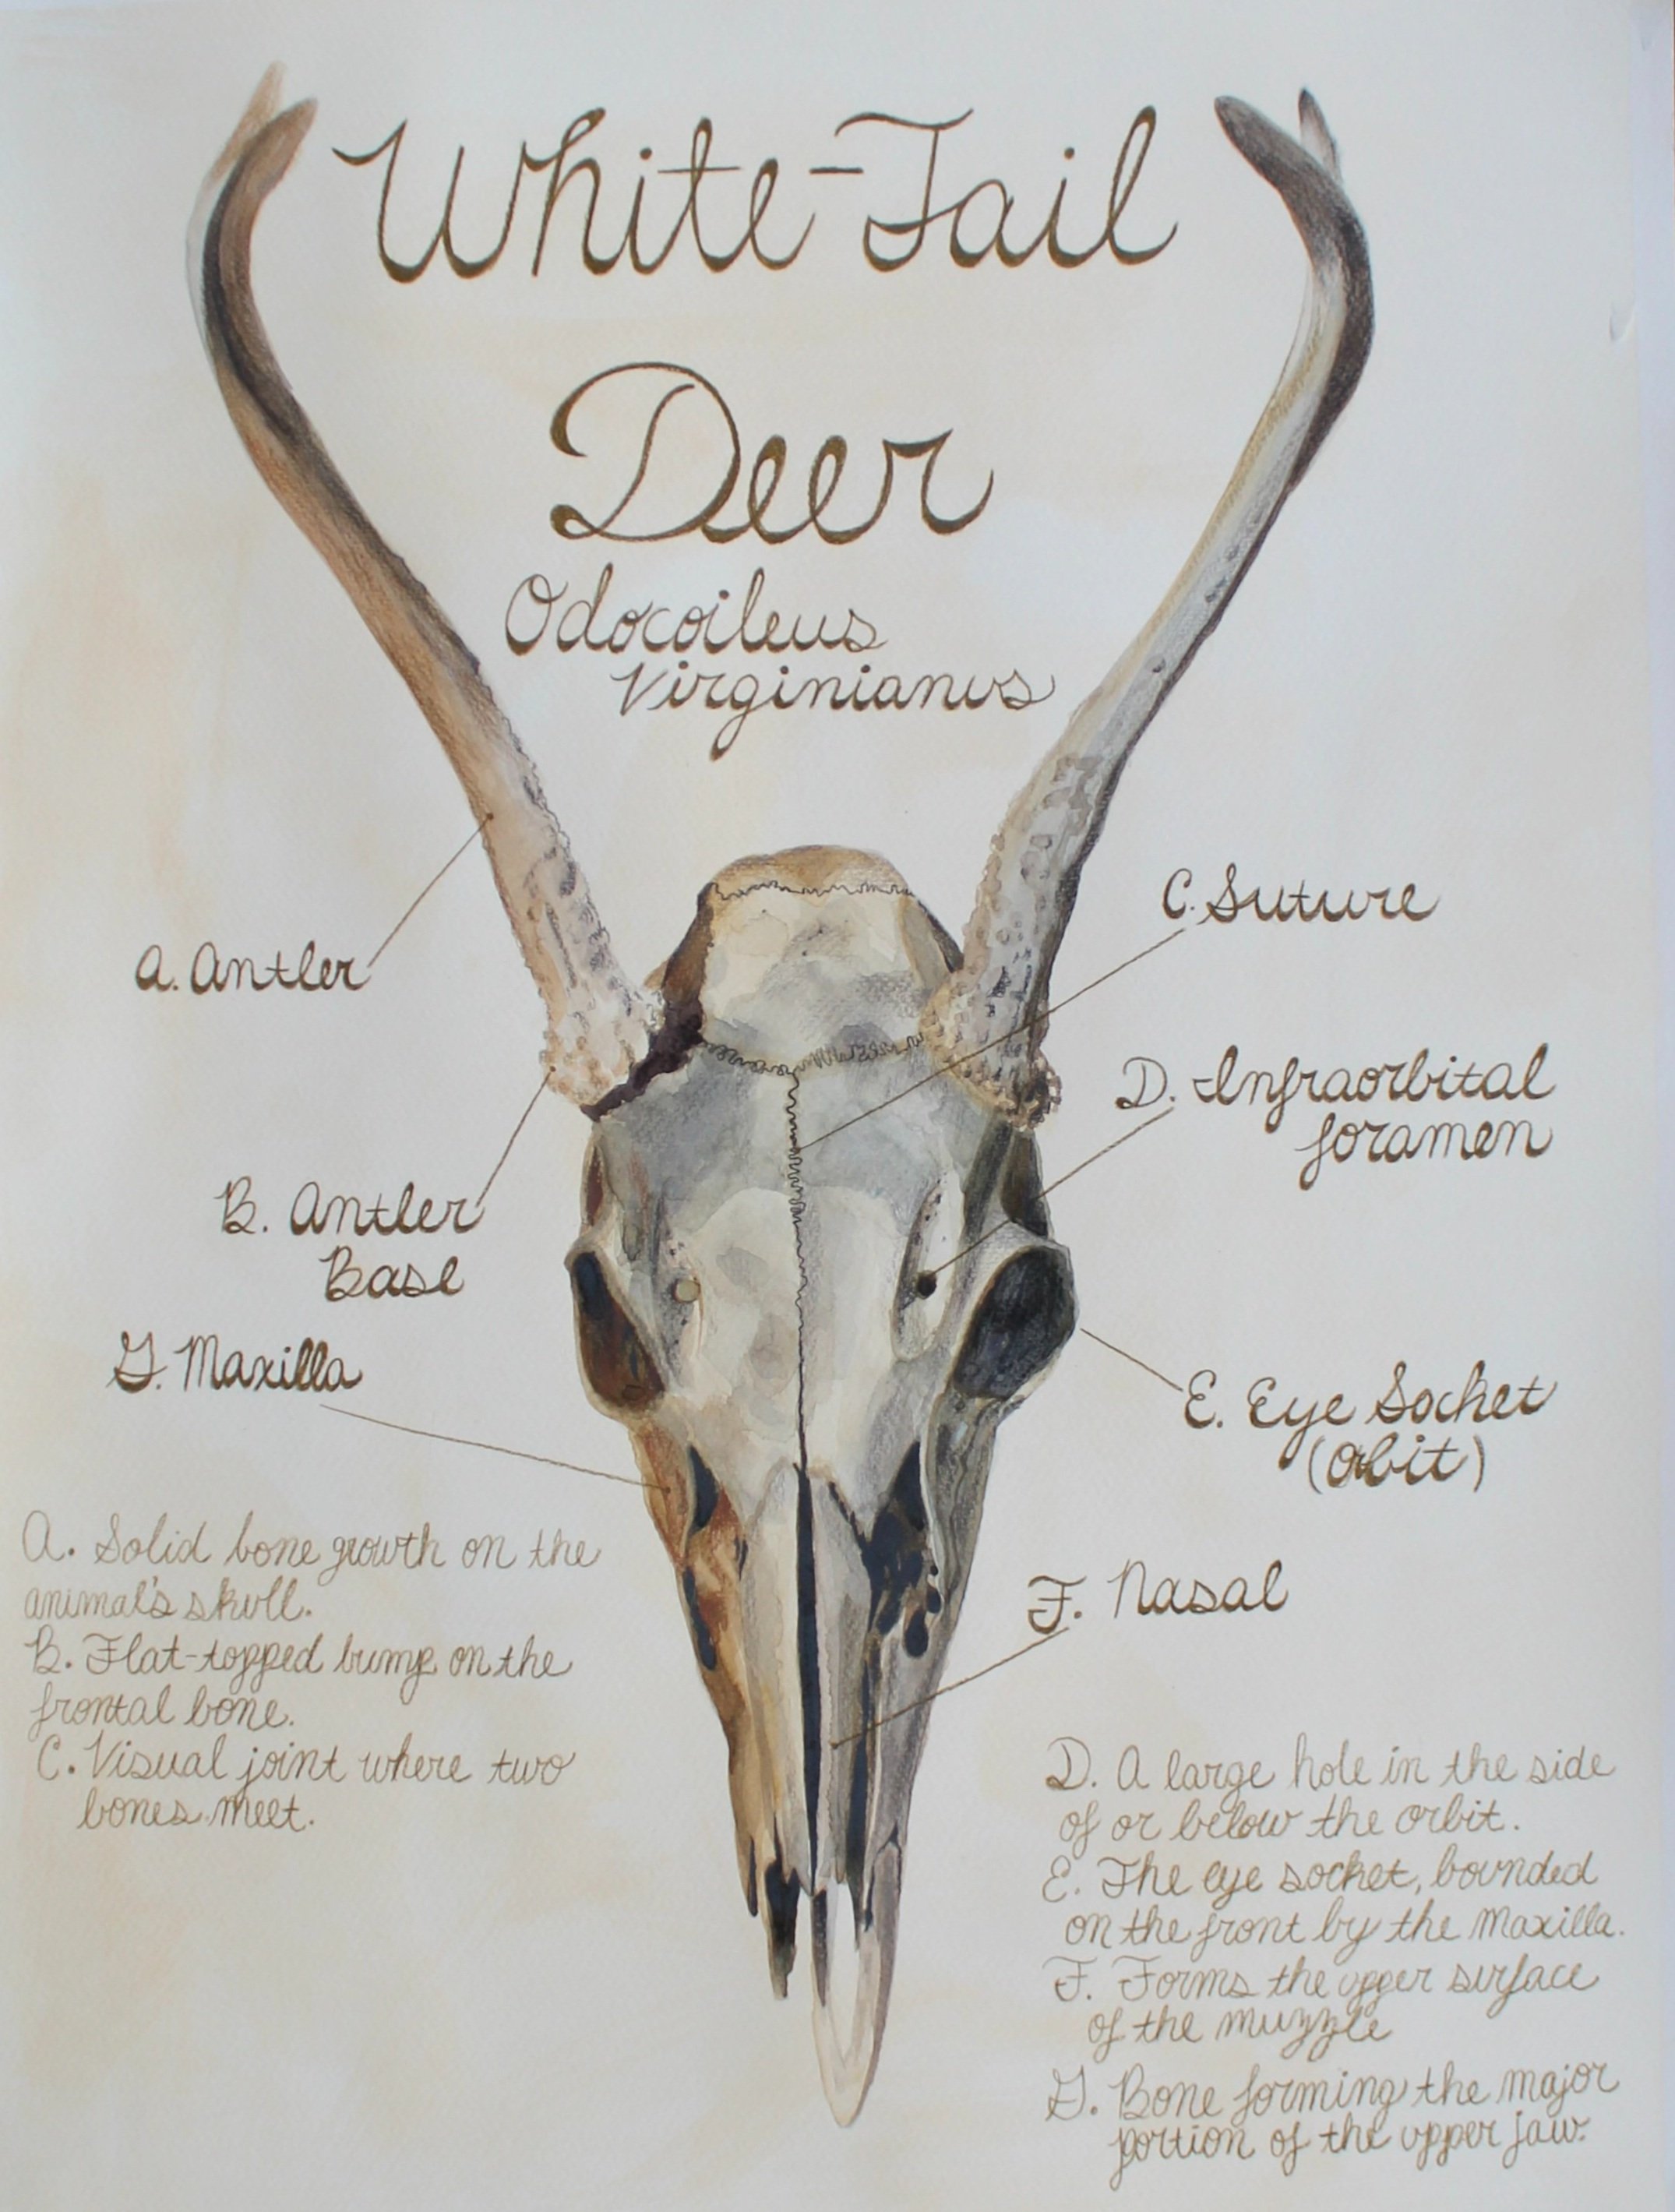 White-Tail
Deer
Odocoileus
Virginianus
A. Antler
B. Antler
Base
G. Maxilla
C. Suture
D. Infraorbital
foramen
E. Eye Socket
(Orbit)
F. Nasal
A. Solid bone growth on the
animal's skull.
B. Flat-topped bump on the
frontal bone.
C. Visual joint where two
bones meet.
D. A large hole in the side
of or below the orbit.
E. The eye socket, bounded
on the front by the Maxilla.
F. Forms the upper surface
of the muzzle
G. Bone forming the major
portion of the upper jaw.